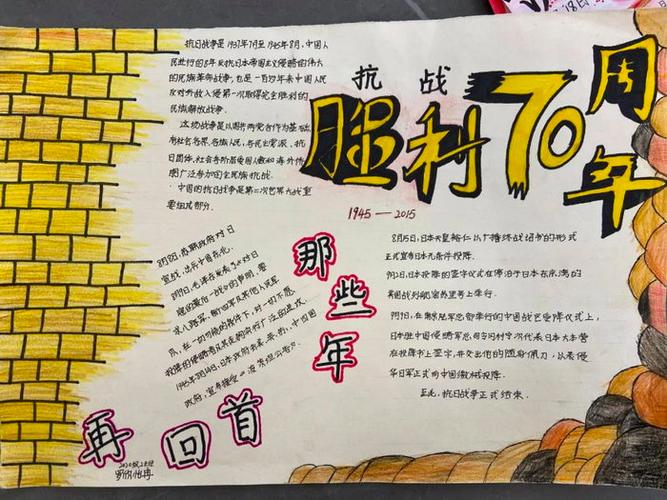 抗日战争是1937年7月至1945年8月,中国人
民进行的8年反抗日本帝国主义侵略的伟大
的民族革命战争,也是一百多年来中国人民
反对外敌入侵第一次取得完全胜利的
民族解放战争。
这场战争是以国共两党合作为基础,
有社会各界、各族人民、各民主党派、抗
日团体、社会各阶层爱国人士和海外侨
胞广泛参加的全民族抗战。
中国的抗日战争是第二次世界大战重
要组成部分。
抗战
胜利70周年
1945—2015
8月8日,苏联政府对日
宣战,出兵中国东北。
8月9日,毛泽东发表了《对日
寇的最后一战》的声明,要
求八路军、新四军及其他人民军
队,在一切可能的条件下,对一切不愿
投降的侵略者及其走狗实行广泛的进攻
1945年8月14日,日本政府照会美、英、中四国
政府,宣布接受《波茨坦公告》。
那些年
再回首
8月15日,日本天皇裕仁以广播终战诏书的形式
正式宣布日本无条件投降。
9月2日,日本投降的签字仪式在停泊于日本东京湾的
美国战列舰密苏里号上举行。
9月9日,在南京陆军总部举行的中国战区受降仪式上,
日本驻中国侵略军总司令冈村宁次代表日本大本营
在投降书上签字,并交出他的随身佩刀,以表侵
华日军正式向中国缴械投降。
至此,抗日战争正式结束。